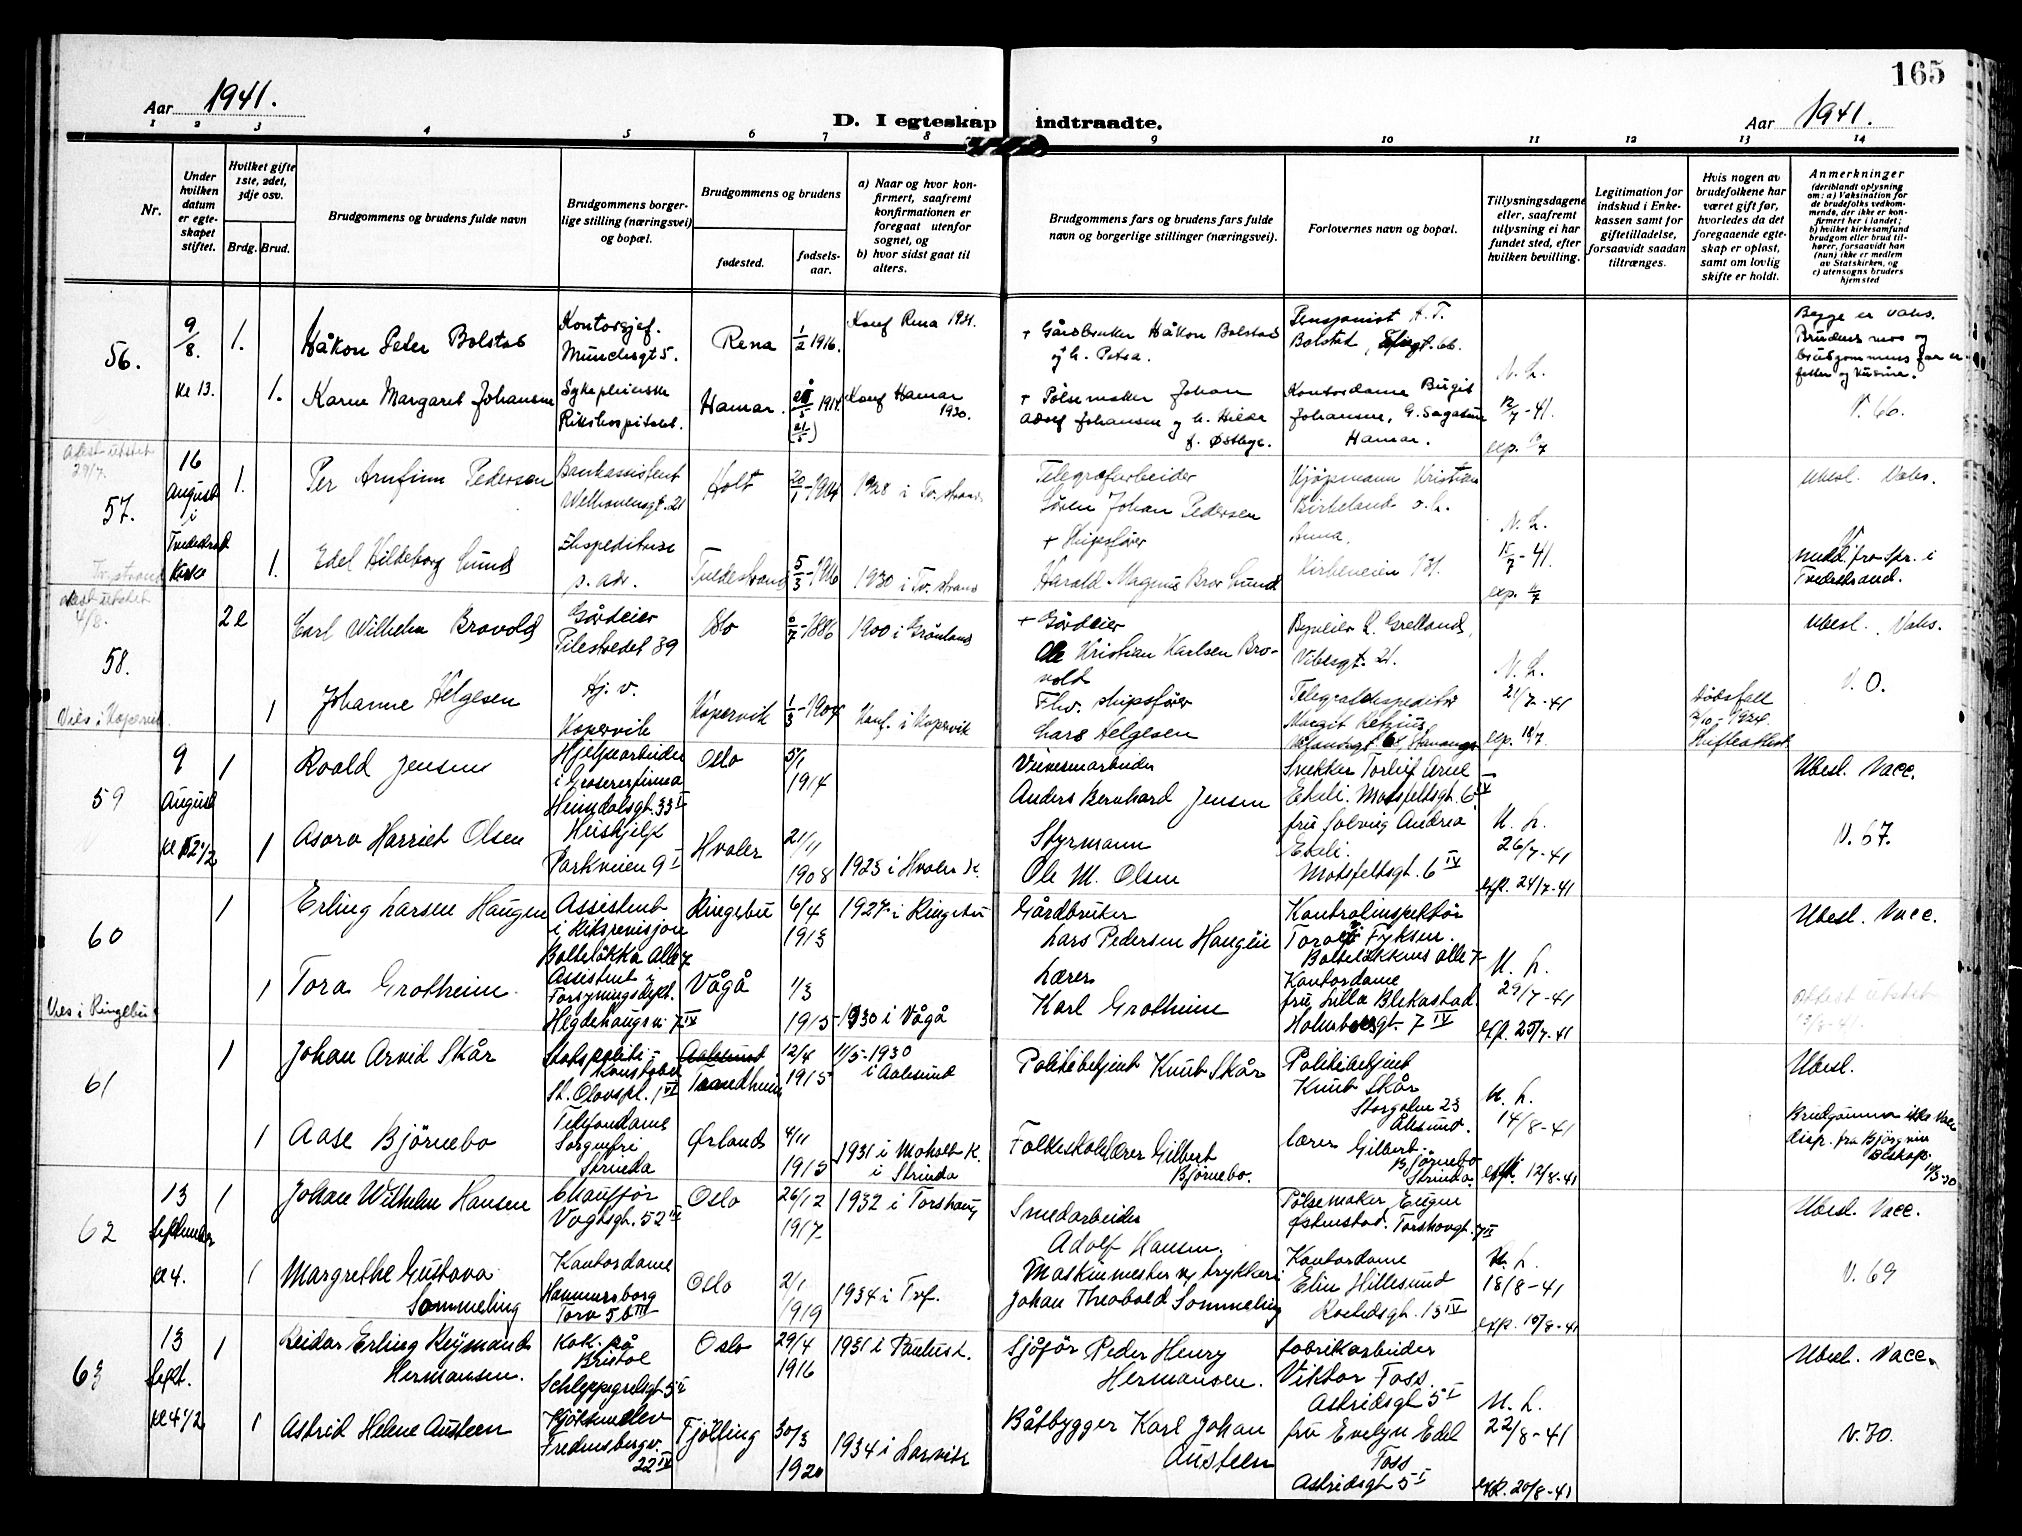 165
Aar 1941.
D. I egteskap indtraadte.
Aar 1941.
1 2 3 4 5 6 7 8 9 10 11 12 13 14
Nr.
Under hvilken datum er egteskapet stiftet.
Hvilket gifte 1ste, 2det, 3dje osv.
Brdg. Brud.
Brudgommens og brudens fulde navn
Brudgommens borgerlige stilling (næringsvei) og bopæl.
Brudgommens og brudens
fødested.
fødselsaar.
a) Naar og hvor konfirmert, saafremt konfirmationen er foregaat utenfor sognet, og
b) hvor sidst gaat til alters.
Brudgommens fars og brudens fars fulde navn og borgerlige stillinger (næringsvei).
Forlovernes navn og bopæl.
Tillysningsdagene eller, saafremt tillysning ei har fundet sted, efter hvilken bevilling.
Legitimation for indskud i Enkekassen samt for giftetilladelse, forsaavidt saadan tiltrænges.
Hvis nogen av brudefolkene har været gift før, hvorledes da det foregaaende egteskap er opløst, samt om lovlig skifte er holdt.
Anmerkninger
(deriblandt oplysning om: a) Vaksination for de brudefolks vedkommende, der ikke er konfirmert her i landet; b) hvilket kirkesamfund brudgom eller brud tilhører, forsaavidt han (hun) ikke er medlem av Statskirken, og c) utensogns bruders hjemsted
56.
9/8. kl 13.
1.
Håkon Peter Bolstad
Kontorsjef. Münchsgt 5.
Rena
1/2 1916.
Konf Rena 1931.
+ Gårdbruker Håkon Bolstad og h. Petra.
Pensjonist H. T. Bolstad,
N. L. 12/7-41.
Begge er vaks. Brudens mor og brudgommens far er fetter og kusine.
1.
Karen Margaret Johansen
Sykepleierske Rikshospitalet.
Hamar.
1914. (21/5)
Konf Hamar 1930.
+ Pølsemaker Johan Adolf Johansen og h. Hilda f. Østbye.
Kontordame Birgit Johansen, G. Sagatun Hamar.
V. 66.
Attest utstedt 29/7.
57.
16 August i Tvedestrand Kirke
1.
Per Arnfinn Pedersen
Bankassistent Welhavensgt. 21
Holt
20/1-1914
1928 i Tv.strand
Telegrafarbeider Søren Johan Pedersen
Kjøpmann Kristian Birkeland o. h. Anna, Kirkeveien 131.
N. L. 15/7-41. exp. 11/7
Ubesl. Vaks.
Tv.strand
1.
Edel Hildeborg Lund
Ekspeditrise s. adr.
Tvedestrand
5/3-1916
1930 i Tv.strand
+ Skipsfører Harald Magnus Brov Lund
medd. fra Spr. i Tvedestrand.
Attest utstedt 4/8.
58.
2
Carl Wilhelm Brovold
Gårdeier Pilestredet 39
Oslo
1886
1900 i Grønland
+ Gårdeier Ole Kristian Karlsen Brovold
Byveier L. Grelland, Vibesgt. 21.
N. L. 21/7-41 exp. 18/7.
Ubesl. Vaks.
Vies i Kopervik.
1
Johanne Helgesen
Hj. v. Kopervik
Kopervik
1/3-1904
Konf. i Kopervik
Fhv. skipsfører Lars Helgesen
Telegrafekspeditør Margit Retzius Stavanger
dødsfall 1924. Skifteattest
V. O.
59
9 August kl 12 1/2
1
Roald Jensen
Hjelpearbeider i Grosererfirma Heimdalsgt. 33 I
Oslo
5/1 1914
Anders Bernhard Jensen
Snekker Torleif Arne Ekeli. Motsfeltsgt. 6 IV
U. L. 26/7-41 exp. 24/7-41
Ubesl. Vacc.
1
Asora Harriet Olsen
Hushjelp Parkveien 9 I
Hvaler
21/11 1908
1923 i Hvaler K.
Styrmann Ole M. Olsen
fru Solveig Andrea Ekeli. Motsfeltsgt. 6 IV
V. 67.
60
1
Erling Larsen Haugen
Assistent i Riksrevisjon Bolteløkka Alle 7
Ringebu
6/4 1913
1927 i Ringebu
Gårdbruker Lars Pedersen Haugen
Kontrolinspektør Toralf Fyksen. Bolteløkkens alle 7
U. L. 29/7-41 exp. 25/7-41
Ubesl. Vacc.
Vies i Ringebu
1
Tora Grotheim.
Assistent i Forsyningsdept. Hegdehaugsv. 7 IV
Vågå
1/3 1915
1930 i Vågå
Lærer Karl Grotheim
Kontordame fru Lilla Blekastad. Holmboesgt. 7 IV
Attest utstedt
61
1
Johan Arvid Skår
Statspolitikonstabel St. Olavspl. 1 VI
Aalesund Trondheim
12/4 1915
11/5-1930 i Aalesund
Politibetjent Knut Skår
Politibetjent Knut Skår Storgaten 23 Ålesund.
U. L. 14/8-41 exp. 12/8-41
Ubesl.
1
Aase Bjørnebo
Telefondame Sorgenfri Strinda
Ørland
4/11 1915
1931 i Moholt K. i Strinda
Folkeskolelærer Gilbert Bjørnebo.
Lærer Gilbert Bjørnebo Strinda.
Brudgommen ikke Vacc disp. fra Bjørgvin Biskop
62
13 September kl 4.
1
Johan Wilhelm Hansen
Chauffør Vogtsgt. 52 IV
Oslo
26/12 1917
1932 i Torshaug
Smedarbeider Adolf Hansen.
Pølsemaker Eugen Østenstad. Torshovgt. 7 II
U. L. 18/8-41 exp. 15/8-41
Ubesl. Vacc.
1
Margrethe Gustava Sommeling
Kontordame Hammersborg Torv 5 b III
Oslo
2/1 1919
1934 i Trf.
Maskinmester v. trykkeri Johan Theobald Sommeling
Kontordame Elin Hillesund 13 IV
V. 69
63
13 Sept. kl 4 1/2
1
Reidar Erling Reymand Hermansen.
Kok på Bristol Schleppegrelsgt 5 II
Oslo
29/4 1916
1931 i Paulus K.
Sjåfør Peder Henry Hermansen.
Fabrikarbeider Viktor Foss. Astridsgt 5 I
U. L. 22/8-41 exp. 20/8-41
Ubesl. Vacc.
1
Astrid Helene Austeen
Fredensborgv. 22 IV
Tjølling
30/3 1920
1934 i Larvik
Båtbygger Karl Johan Austeen
fru Evelyn Edel Foss Astridsgt 5 I
V. 70.